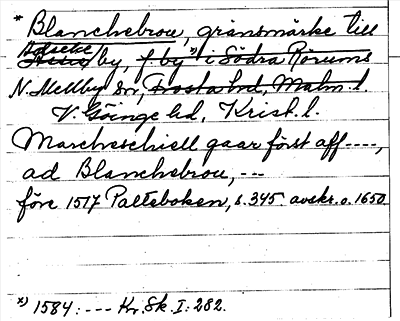 * Blanchebrou, gränsmärke till
Adseke
by, f. by x) i Södra Rörums
N. Mellby sn, Frosta hd, Malm. l.
V. Göinge hd, Krist. l.
Marcheschiell gaar först aff ----,
ad Blanchebrou, ---
före 1517 Palteboken, s. 345. avskr. o. 1650.
x) 1584: --- Kr. Sk. I: 282.